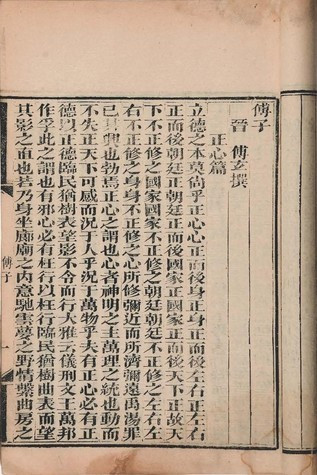 傅子
晉 傅玄撰
正心篇
立德之本莫尚乎正心心正而後身正身正而後左右正左右
正而後朝廷正朝廷正而後國家正國家正而後天下正故天
下不正修之國家國家不正修之朝廷朝廷不正修之左右左
右不正修之身身不正修之心所修彌近而所濟彌遠禹湯罪
已其興也勃焉正心之謂也心者神明之主萬理之統也動而
不失正天下可感而況于人乎況于萬物乎夫有正心必有正
德以正德臨民猶樹表望影不令而行大雅云儀刑文王萬邦
作孚此之謂也有邪心必有枉行以枉行臨民猶樹曲表而望
其影之直也若乃身坐廊廟之內意馳雲夢之野情繫曲房之
傅子
一